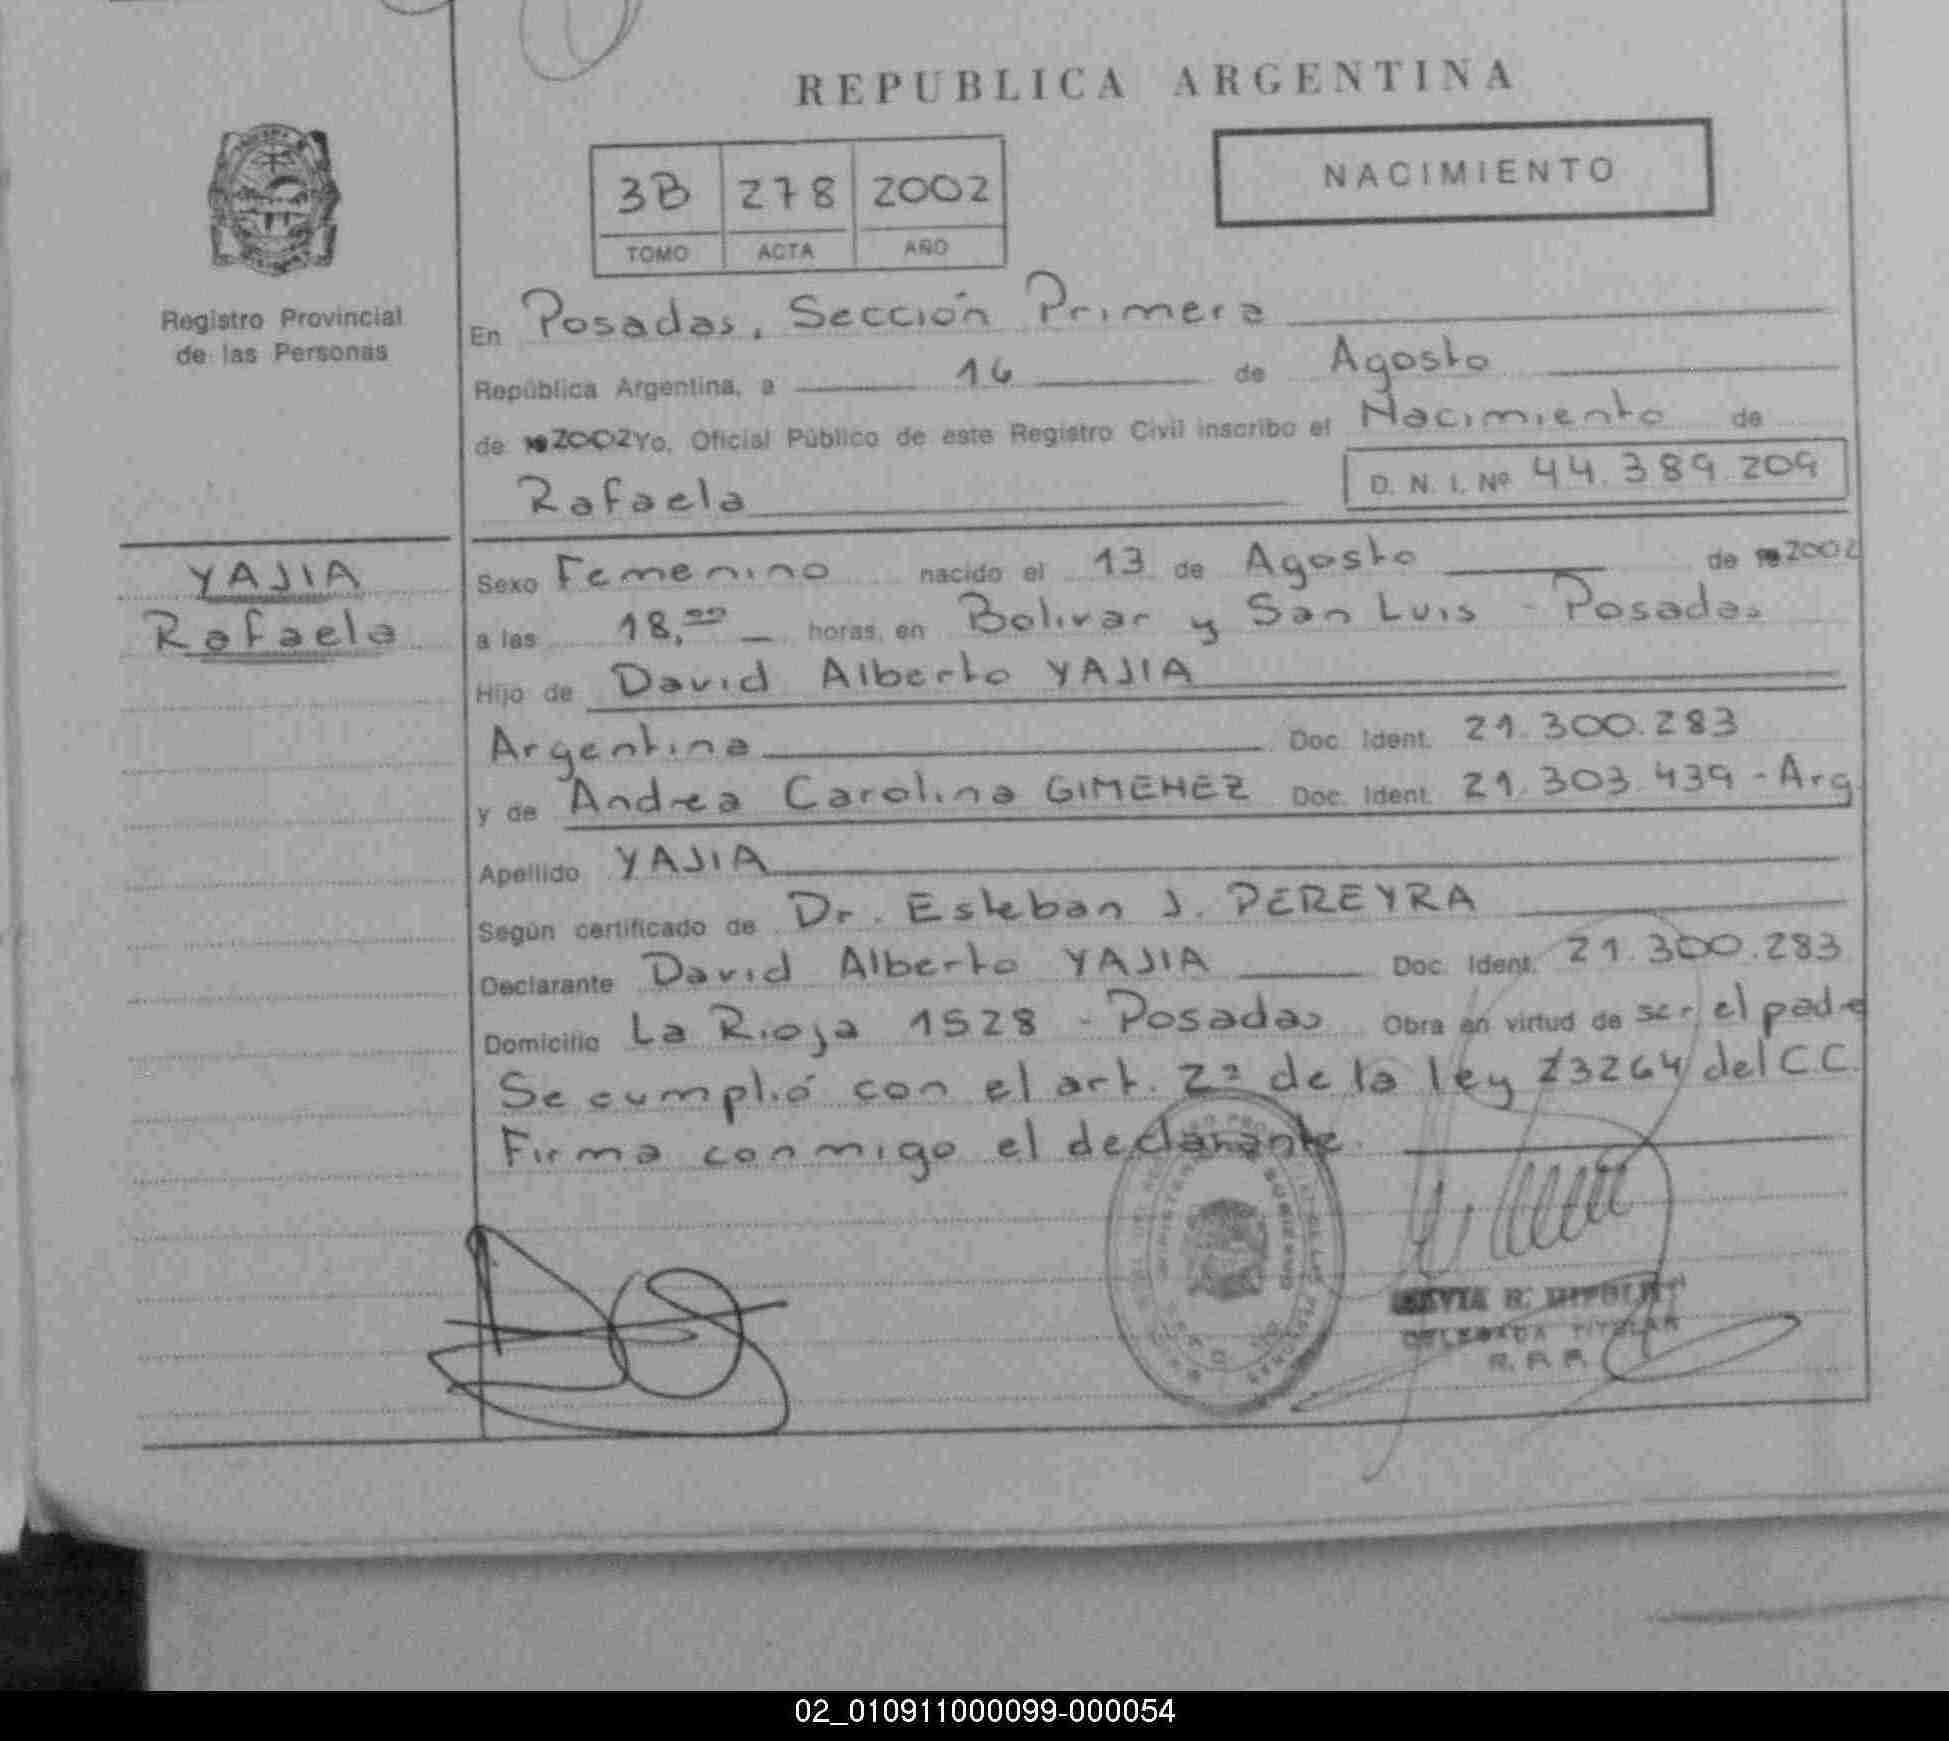 REPUBLICA ARGENTINA
3B 278 2002
TOMO ACTA AÑO
NACIMIENTO
Registro Provincial
de las Personas
En Posadas, Sección Primera
República Argentina, a 16 de Agosto
de 2002 Yo, Oficial Público de este Registro Civil inscribo el Nacimiento de
Rafaela D. N. I. Nº 44.389.209
YAJIA
Rafaela
Sexo Femenino nacido el 13 de Agosto de 2002
a las 18,00 horas, en Bolivar y San Luis - Posadas
Hijo de David Alberto YAJIA
Argentina Doc. Ident. 21.300.283
y de Andrea Carolina GIMENEZ Doc. Ident. 21.303.439 - Arg
Apellido YAJIA
Según certificado de Dr. Esteban J. PEREYRA
Declarante David Alberto YAJIA Doc. Ident. 21.300.283
Domicilio La Rioja 1528 - Posadas Obra en virtud de ser el padre
Se cumplió con el art. 2º de la ley 23264 del C.C.
Firma conmigo el declarante.
DELEGADA TITULAR
02_010911000099-000054